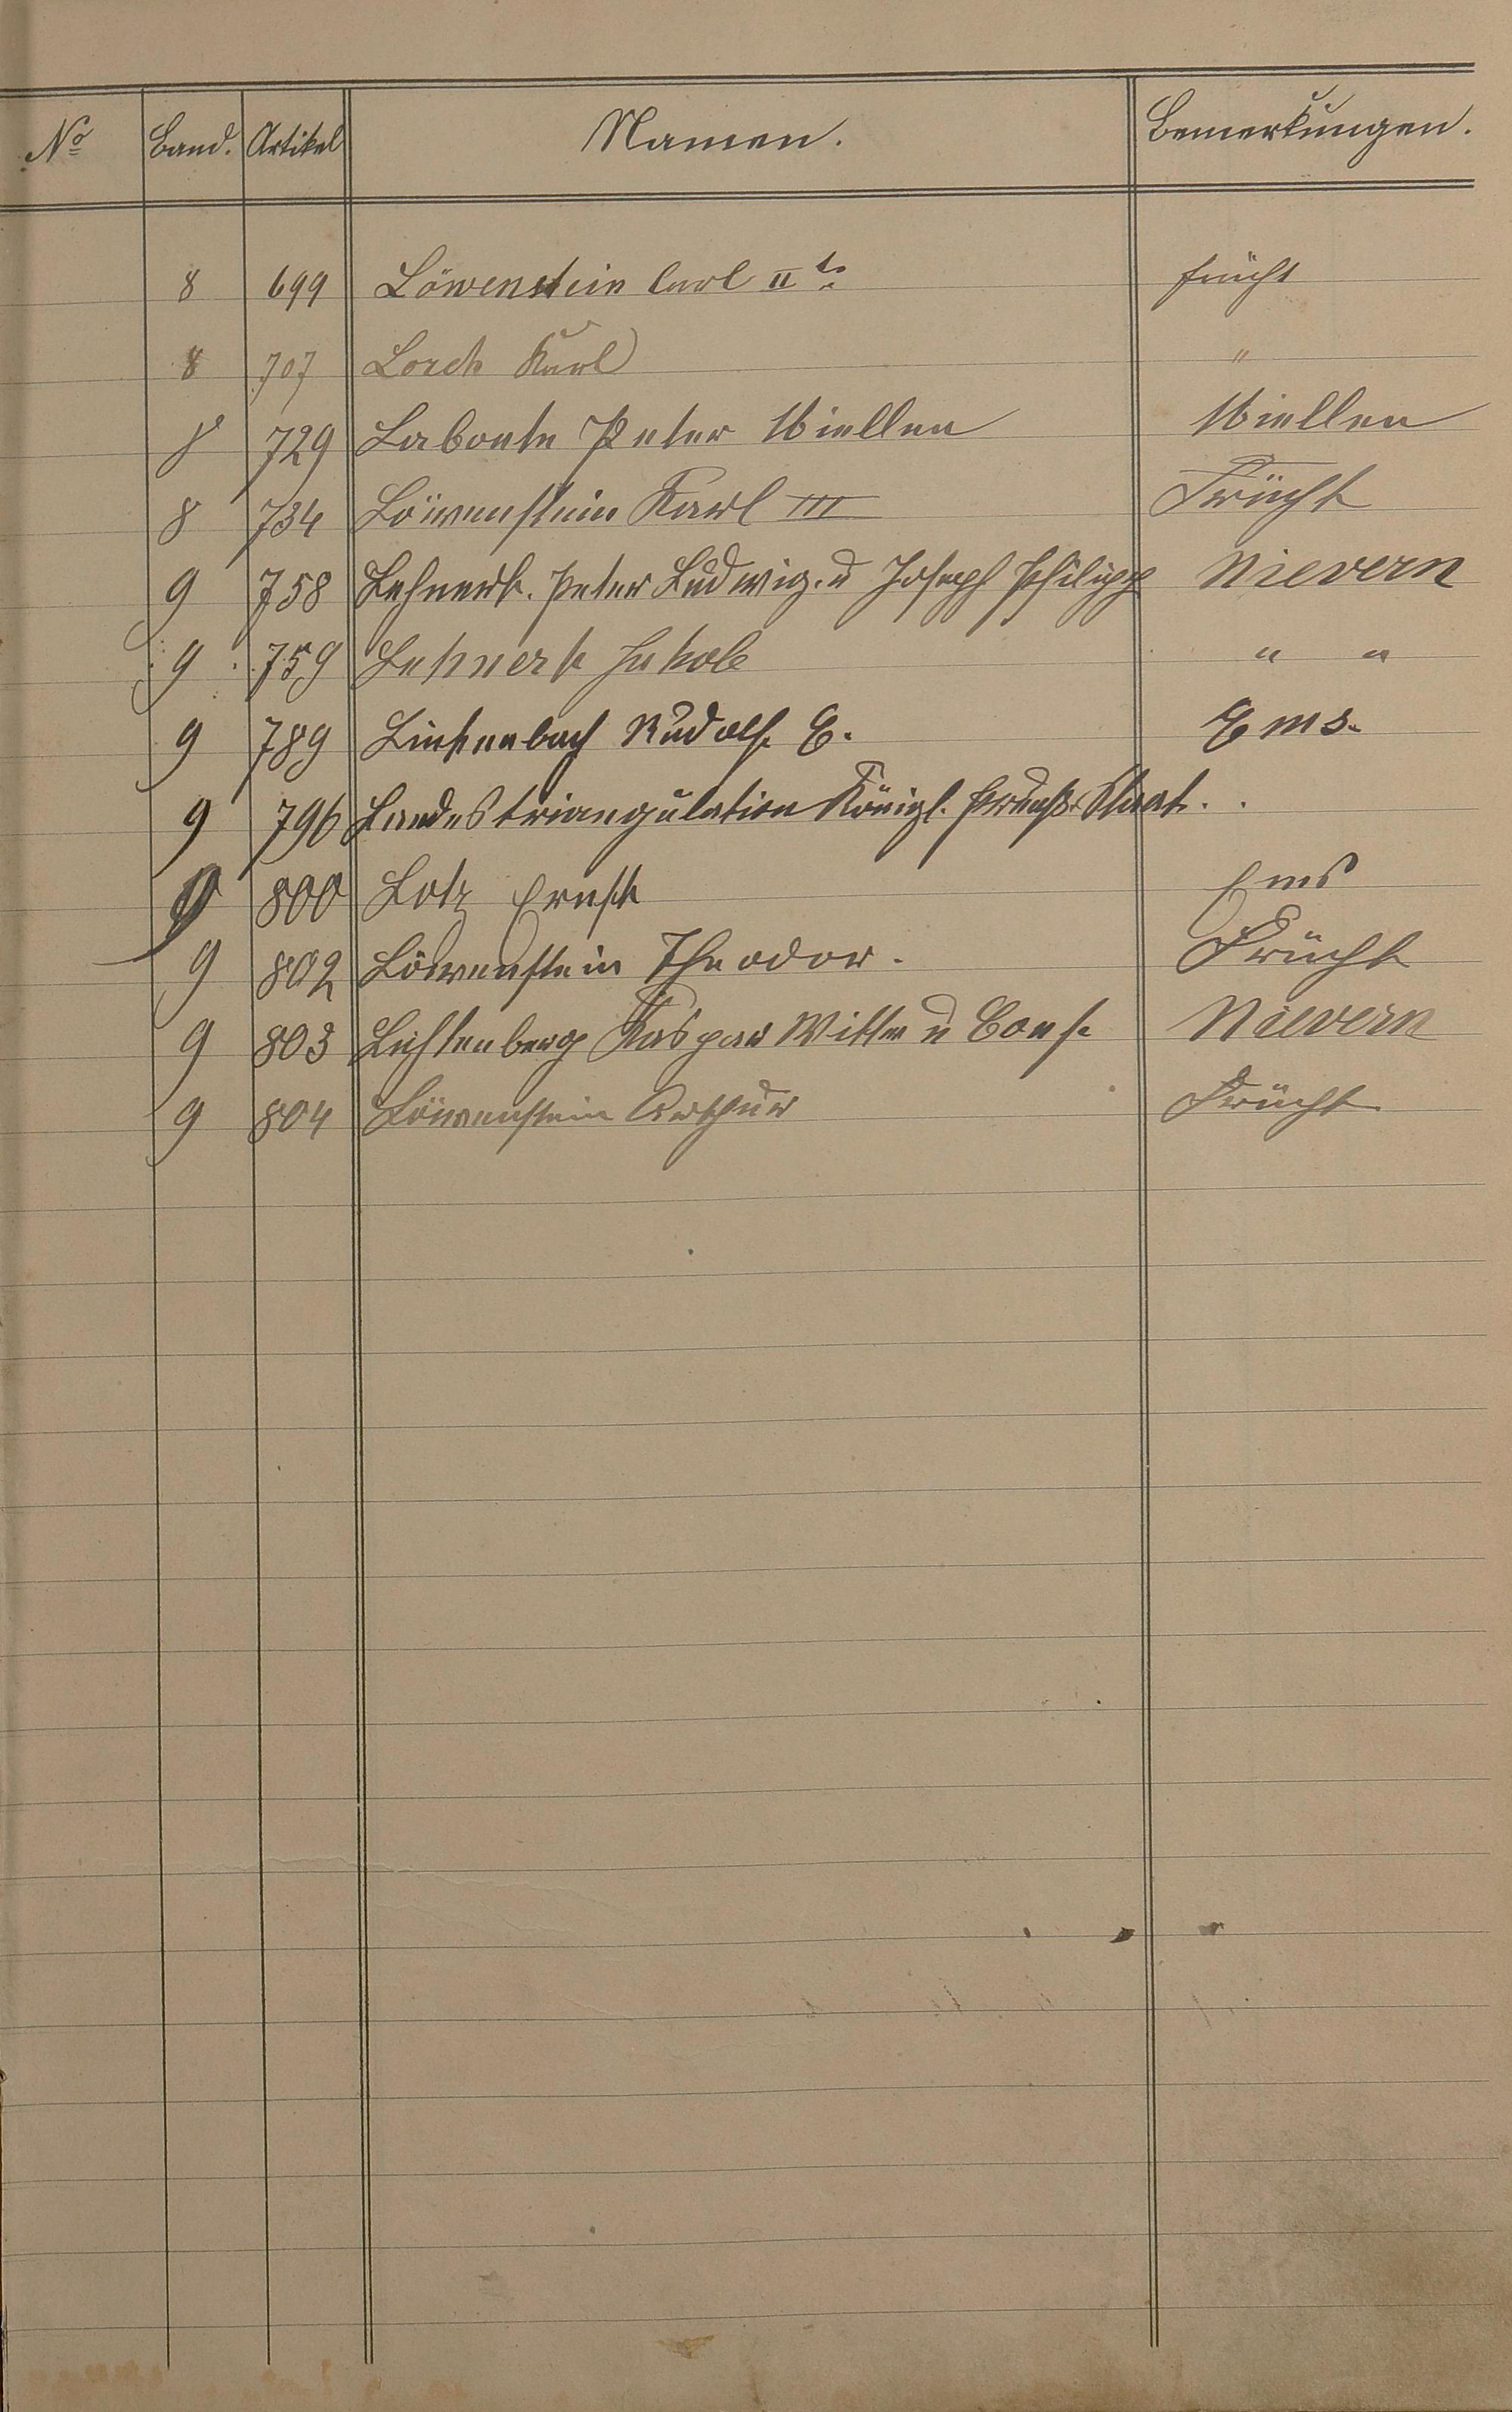 No Band. Artikel Namen. Bemerkungen.
8 699 Löwenstein Carl II ts. Frücht
8 707 Lorch Karl "
8 729 Labonte Peter Miellen Miellen
8 734 Löwenstein Karl III Frücht
9 758 Lehnert. Peter Ludwig. u Joseph Philipp Nievern
9 759 Lehnert Jakob " "
9 789 Linkenbach Rudolf E. Ems.
9 796 Landestriangulation Königl. Preuß. Staat.
9 800 Lotz Ernst Ems
9 802 Löwenstein Theodor. Frücht
9 803 Lichtenberg Kaspar Wittw u Cons. Nievern
9 804 Löwenstein Arthur Frücht